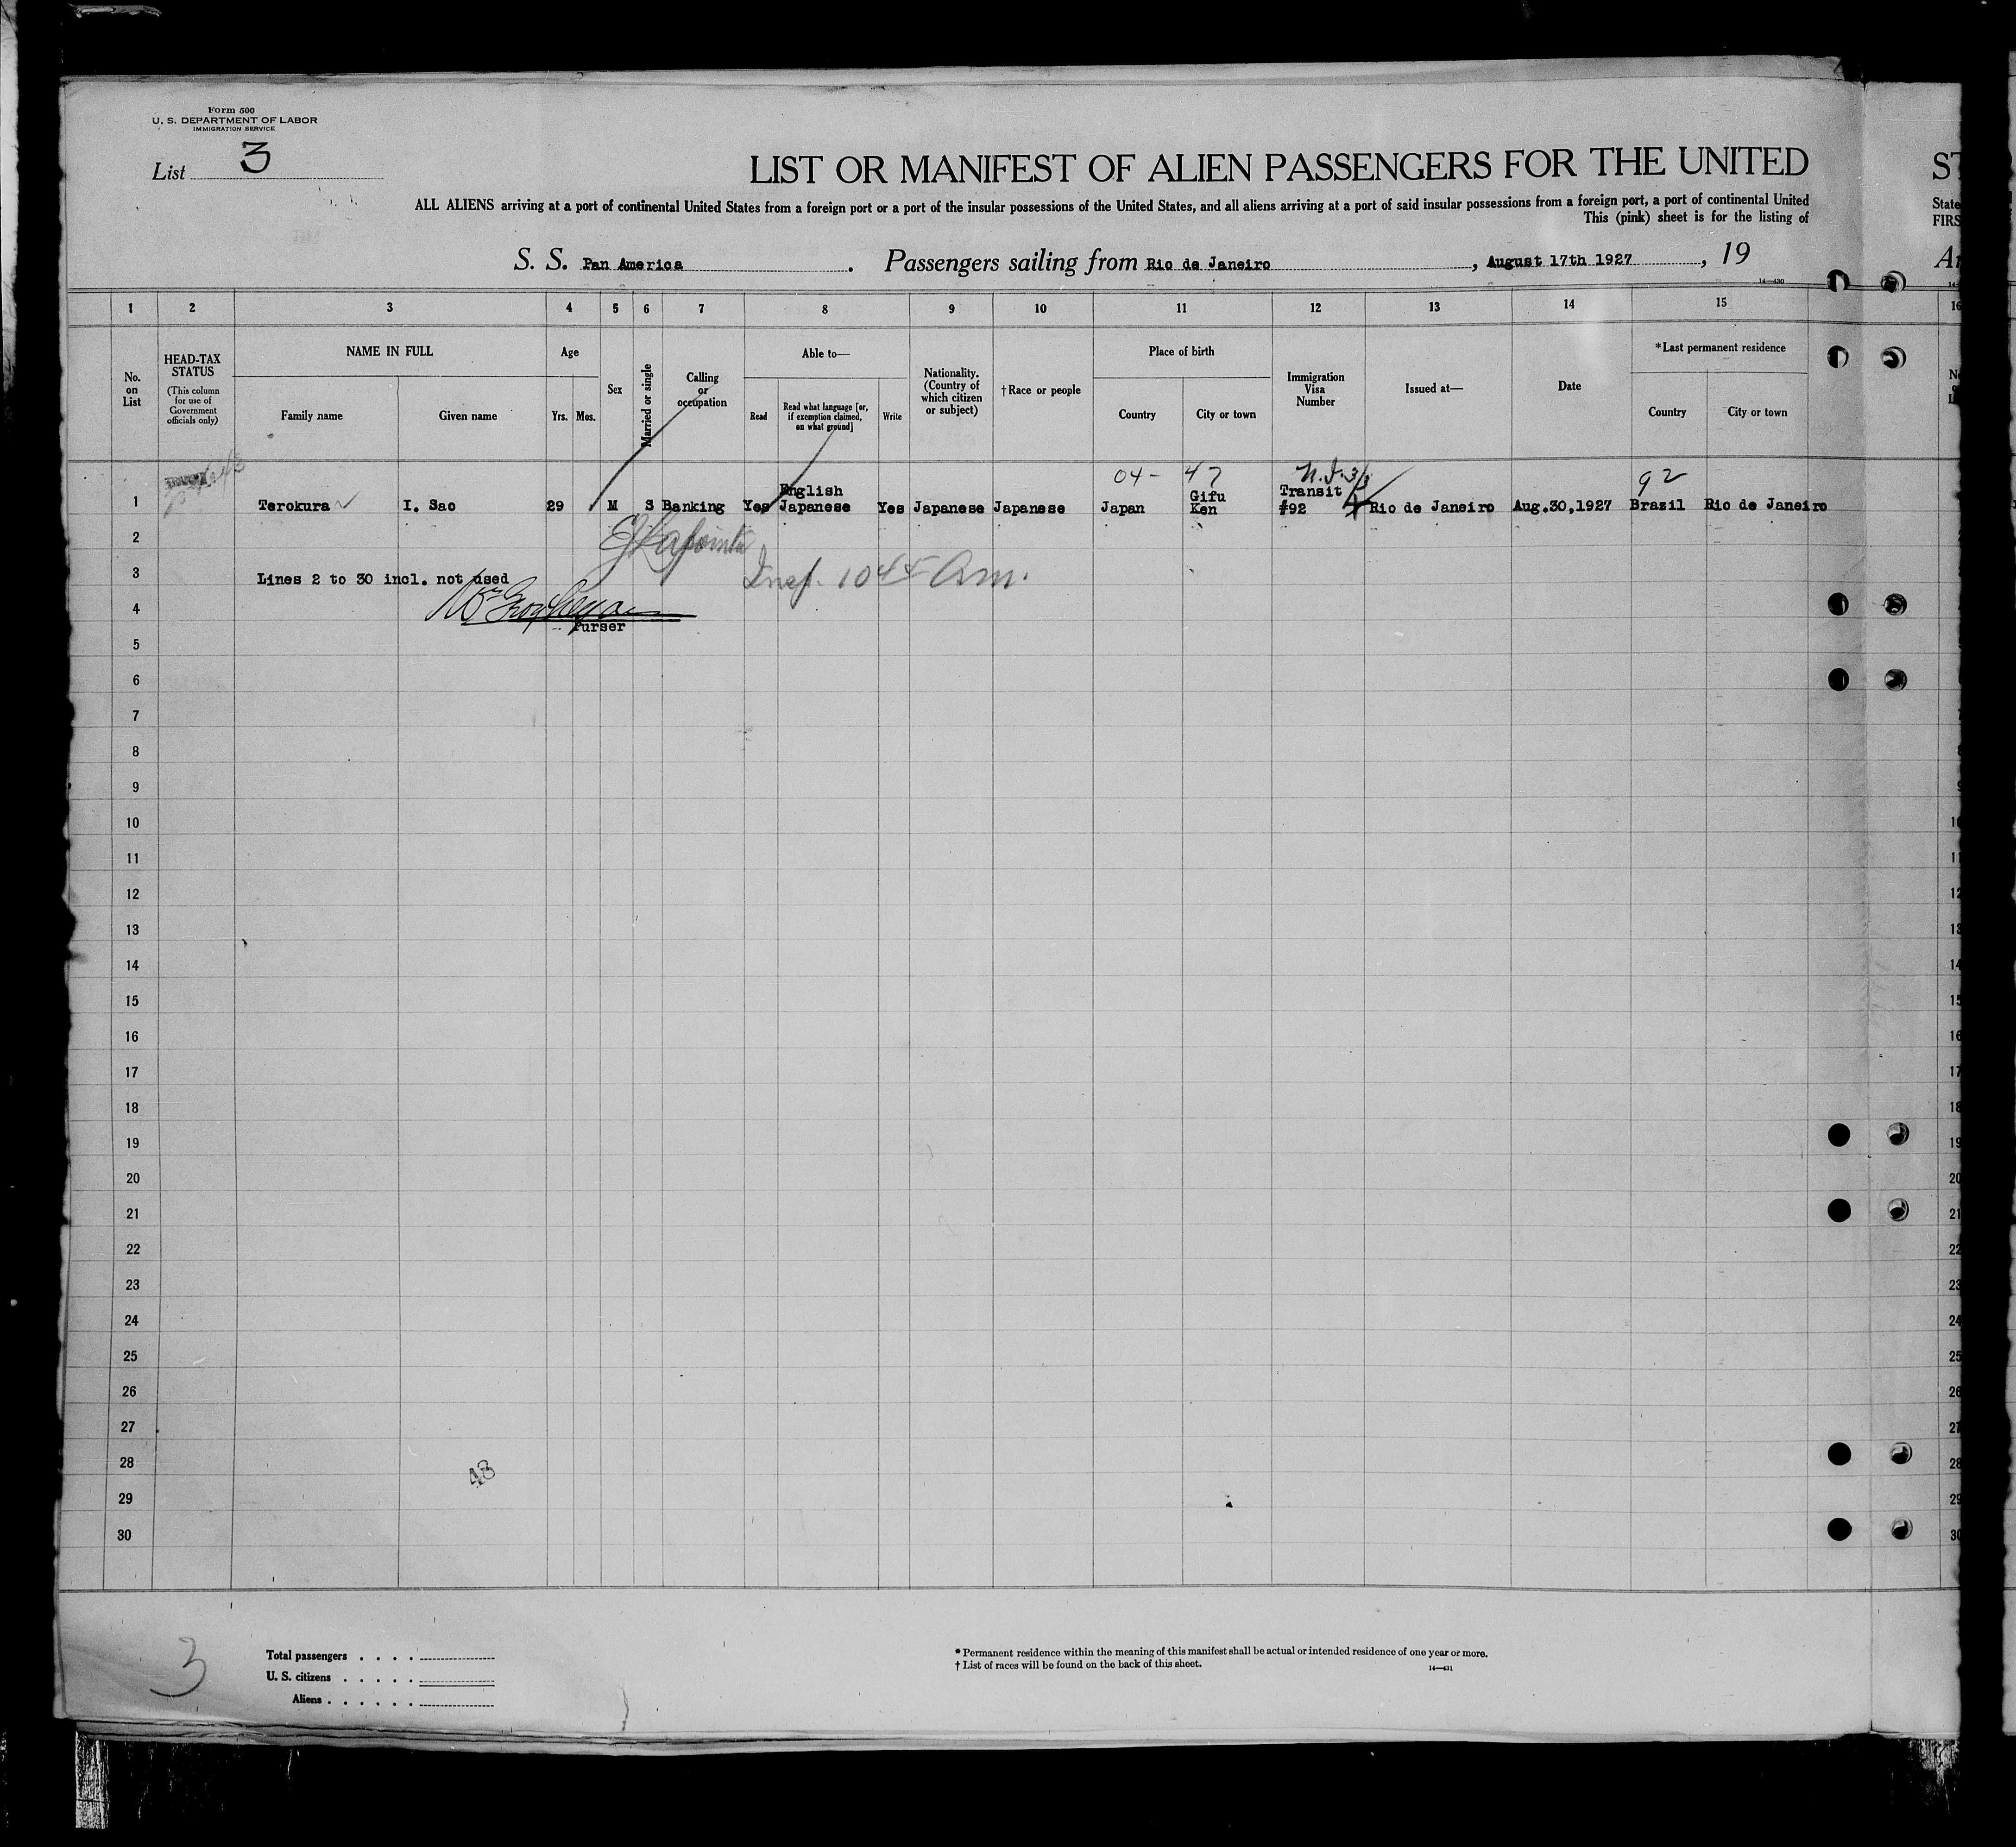 Form 500
U. S. DEPARTMENT OF LABOR
IMMIGRATION SERVICE
List 3
LIST OR MANIFEST OF ALIEN PASSENGERS FOR THE UNITED
ST
ALL ALIENS arriving at a port of continental United States from a foreign port or a port of the insular possessions of the United States, and all aliens arriving at a port of said insular possessions from a foreign port, a port of continental United
State
This (pink) sheet is for the listing of
FIRS
S. S. Pan America. Passengers sailing from Rio de Janeiro, August 17th 1927, 19
14—430
1 2 3 4 5 6 7 8 9 10 11 12 13 14 15 16
No. on List
HEAD-TAX STATUS
(This column for use of Government officials only)
NAME IN FULL
Family name Given name
Age
Yrs. Mos.
Sex
Married or single
Calling or occupation
Able to—
Read
Read what language [or, if exemption claimed, on what ground]
Write
Nationality. (Country of which citizen or subject)
†Race or people
Place of birth
Country City or town
Immigration Visa Number
Issued at—
Date
*Last permanent residence
Country City or town
04- 47 92
1 Terokura I. Sao 29 M S Banking Yes English Japanese Yes Japanese Japanese Japan Gifu Ken Transit #92 Rio de Janeiro Aug.30,1927 Brazil Rio de Janeiro
2
3 Lines 2 to 30 incl. not used Insp. 10 45 Am.
4
Purser
5
6
7
8
9
10
11
12
13
14
15
16
17
18
19
20
21
22
23
24
25
26
27
28
48
29
30
3
Total passengers . . . .
U. S. citizens . . . . .
Aliens . . . . . .
* Permanent residence within the meaning of this manifest shall be actual or intended residence of one year or more.
† List of races will be found on the back of this sheet.
14—431